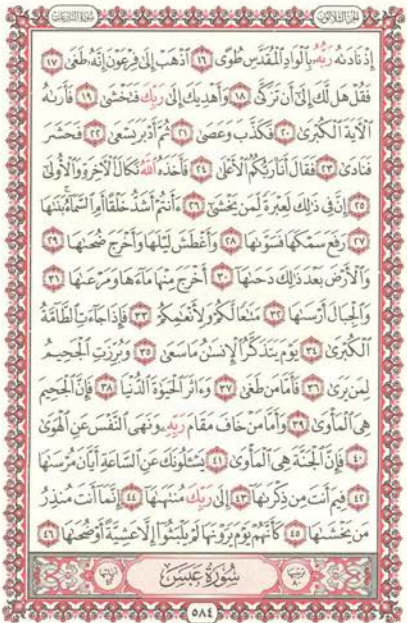 سُورَةُ النَّازِعَاتِ الجُزْءُ الثَّلَاثُونَ
إِذْ نَادَىٰهُ رَبُّهُۥ بِٱلْوَادِ ٱلْمُقَدَّسِ طُوًى ١٦ ٱذْهَبْ إِلَىٰ فِرْعَوْنَ إِنَّهُۥ طَغَىٰ ١٧
فَقُلْ هَل لَّكَ إِلَىٰٓ أَن تَزَكَّىٰ ١٨ وَأَهْدِيَكَ إِلَىٰ رَبِّكَ فَتَخْشَىٰ ١٩ فَأَرَىٰهُ
ٱلْءَايَةَ ٱلْكُبْرَىٰ ٢٠ فَكَذَّبَ وَعَصَىٰ ٢١ ثُمَّ أَدْبَرَ يَسْعَىٰ ٢٢ فَحَشَرَ
فَنَادَىٰ ٢٣ فَقَالَ أَنَا۠ رَبُّكُمُ ٱلْأَعْلَىٰ ٢٤ فَأَخَذَهُ ٱللَّهُ نَكَالَ ٱلْءَاخِرَةِ وَٱلْأُولَىٰٓ
٢٥ إِنَّ فِى ذَٰلِكَ لَعِبْرَةً لِّمَن يَخْشَىٰٓ ٢٦ ءَأَنتُمْ أَشَدُّ خَلْقًا أَمِ ٱلسَّمَآءُ ۚ بَنَىٰهَا
٢٧ رَفَعَ سَمْكَهَا فَسَوَّىٰهَا ٢٨ وَأَغْطَشَ لَيْلَهَا وَأَخْرَجَ ضُحَىٰهَا ٢٩
وَٱلْأَرْضَ بَعْدَ ذَٰلِكَ دَحَىٰهَآ ٣٠ أَخْرَجَ مِنْهَا مَآءَهَا وَمَرْعَىٰهَا ٣١
وَٱلْجِبَالَ أَرْسَىٰهَا ٣٢ مَتَٰعًا لَّكُمْ وَلِأَنْعَٰمِكُمْ ٣٣ فَإِذَا جَآءَتِ ٱلطَّآمَّةُ
ٱلْكُبْرَىٰ ٣٤ يَوْمَ يَتَذَكَّرُ ٱلْإِنسَٰنُ مَا سَعَىٰ ٣٥ وَبُرِّزَتِ ٱلْجَحِيمُ
لِمَن يَرَىٰ ٣٦ فَأَمَّا مَن طَغَىٰ ٣٧ وَءَاثَرَ ٱلْحَيَوٰةَ ٱلدُّنْيَا ٣٨ فَإِنَّ ٱلْجَحِيمَ
هِىَ ٱلْمَأْوَىٰ ٣٩ وَأَمَّا مَنْ خَافَ مَقَامَ رَبِّهِۦ وَنَهَى ٱلنَّفْسَ عَنِ ٱلْهَوَىٰ
٤٠ فَإِنَّ ٱلْجَنَّةَ هِىَ ٱلْمَأْوَىٰ ٤١ يَسْـَٔلُونَكَ عَنِ ٱلسَّاعَةِ أَيَّانَ مُرْسَىٰهَا
٤٢ فِيمَ أَنتَ مِن ذِكْرَىٰهَآ ٤٣ إِلَىٰ رَبِّكَ مُنتَهَىٰهَآ ٤٤ إِنَّمَآ أَنتَ مُنذِرُ
مَن يَخْشَىٰهَا ٤٥ كَأَنَّهُمْ يَوْمَ يَرَوْنَهَا لَمْ يَلْبَثُوٓا۟ إِلَّا عَشِيَّةً أَوْ ضُحَىٰهَا ٤٦
ترتيبها ٨٠ سُورَةُ عَبَسَ آياتها
٥٨٤